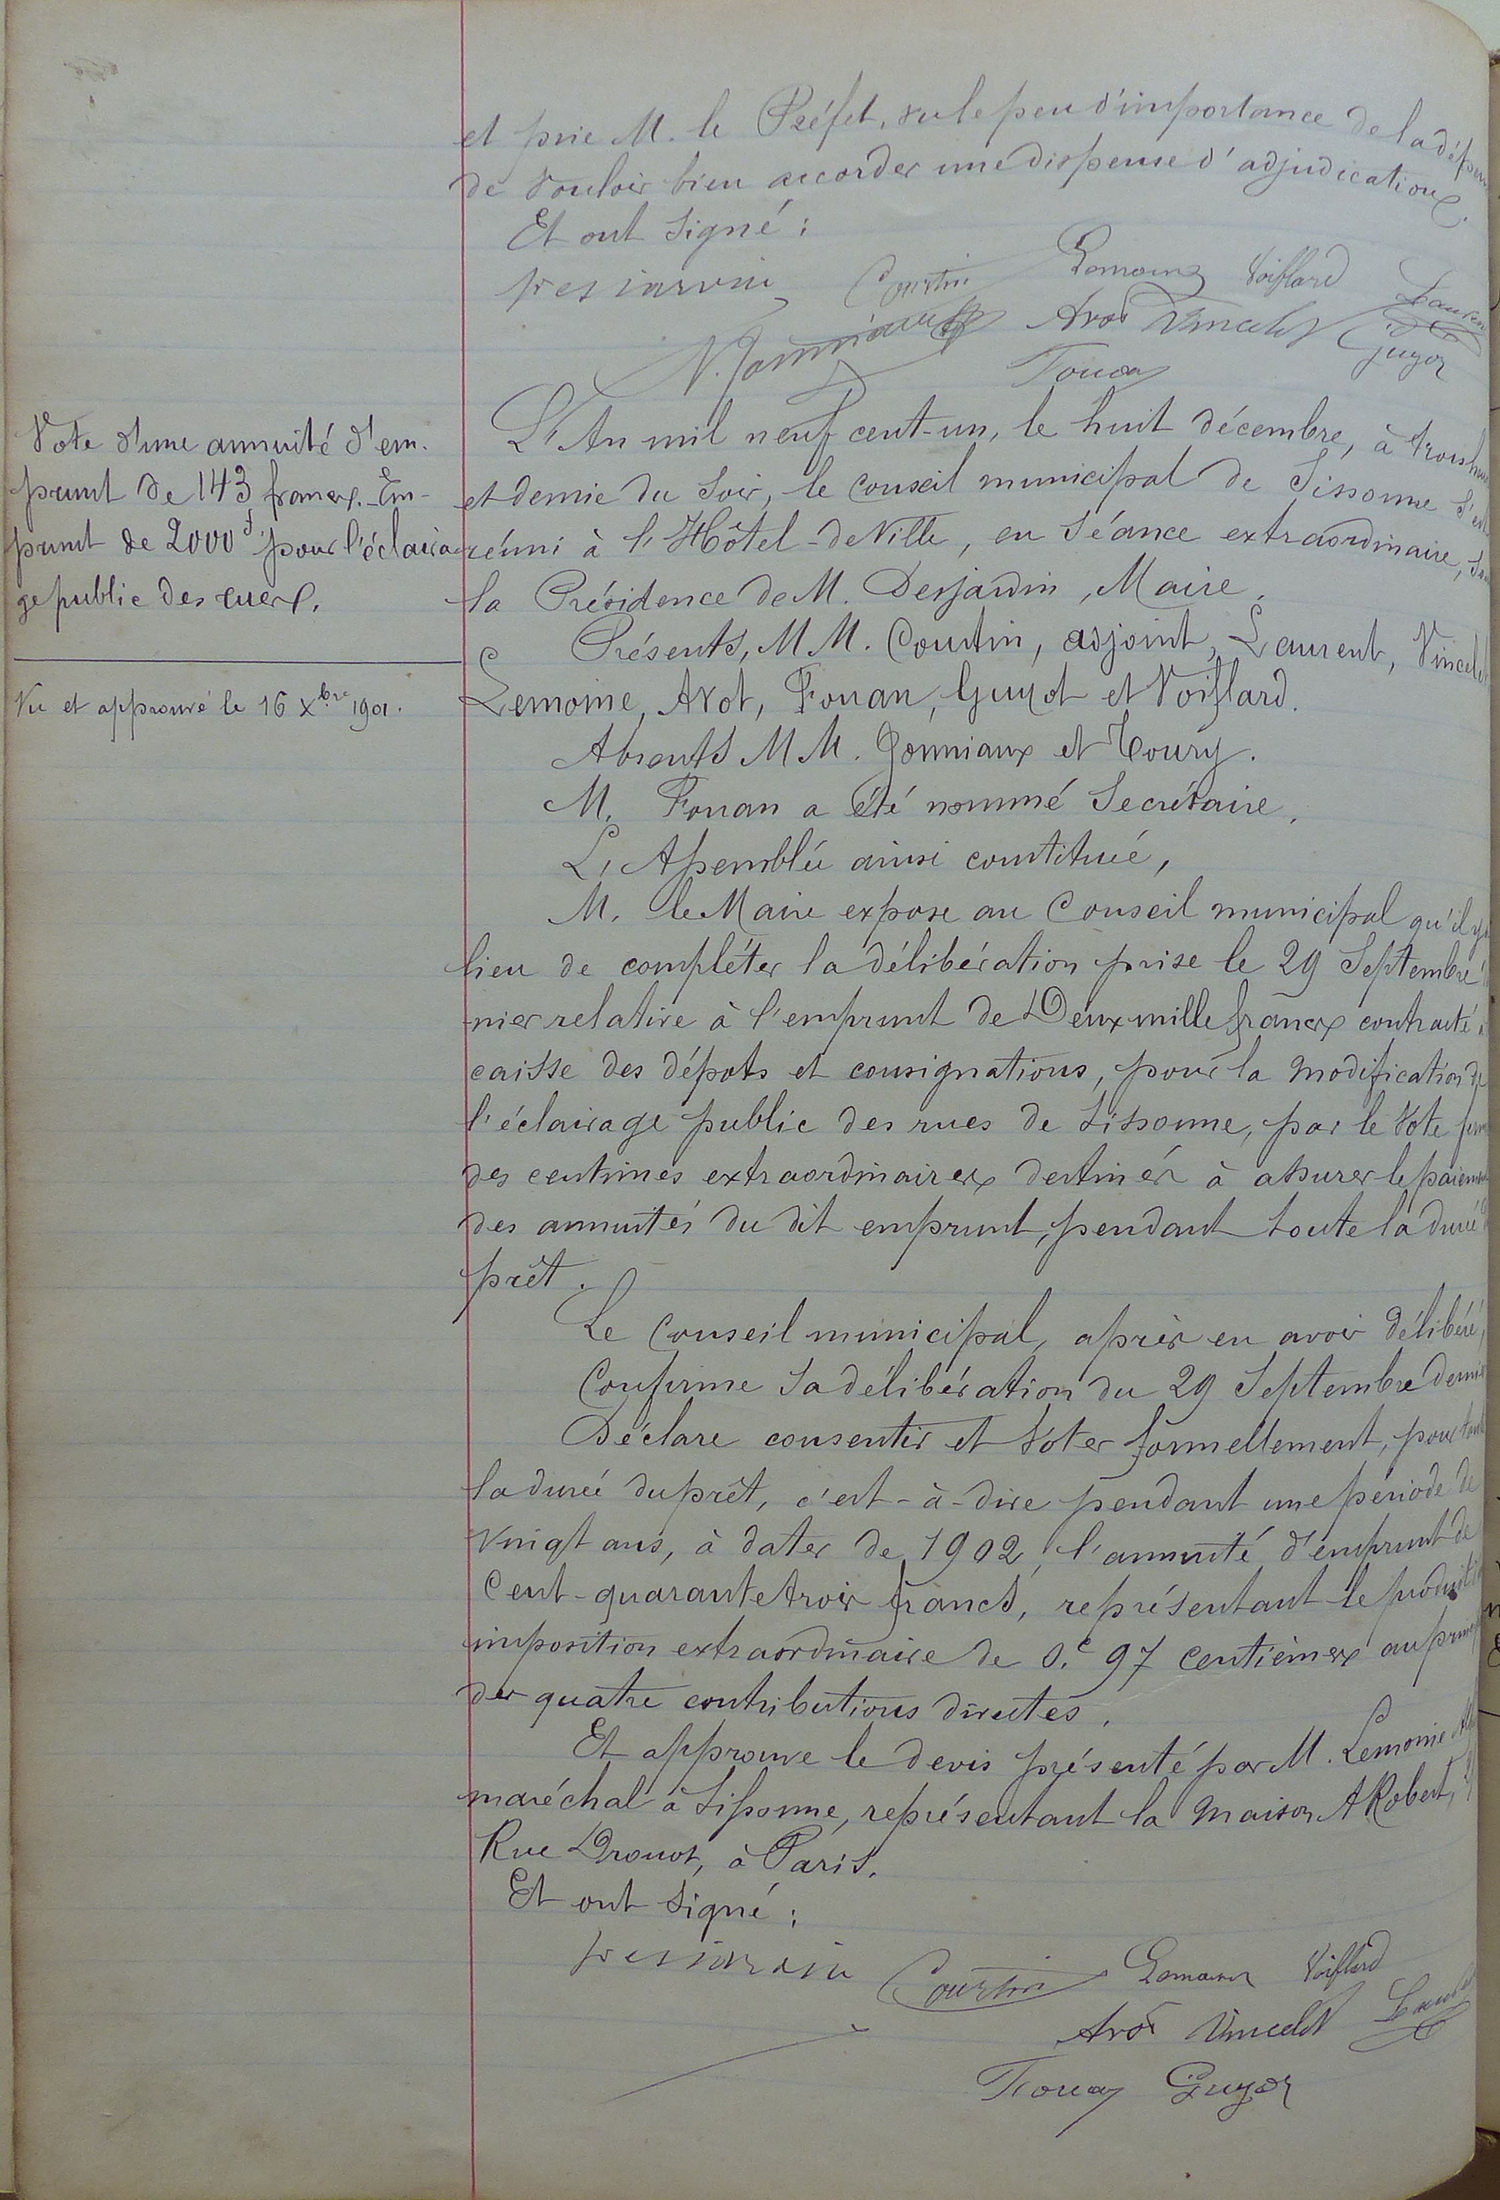 et prie M. le Préfet, vu le peu d'importance de la dépen
de vouloir bien accorder une dispense d'adjudication.
Et ont signé :
Desjardin Courtin Lemoine Voiflard Laurent
N. Jonniaux Avot Vincelet Guyot
Fouan
Vote d'une annuité d'em-
prunt de 143 francs. Em-
prunt de 2000f pour l'éclaira
ge public des rues.
Vu et approuvé le 16 Xbre 1901.
L'An mil neuf cent-un, le huit décembre, à trois heu
et demie du soir, le conseil municipal de Sissonne s'est
réuni à l'Hôtel-de Ville, en séance extraordinaire, sou
la Présidence de M. Desjardin, Maire.
Présents, M M. Courtin, adjoint, Laurent, Vincelet
Lemoine, Avot, Fouan, Guyot et Voiflard.
Absents M M. Jonniaux et Toury.
M. Fouan a été nommé Secrétaire.
L'Assemblée ainsi constituée,
M. le Maire expose au Conseil municipal qu'il y a
lieu de compléter la délibération prise le 29 Septembre
nier relative à l'emprunt de Deux mille francs contracté
caisse des dépots et consignations, pour la modification de
l'éclairage public des rues de Sissonne, par le vote
des centimes extraordinaires destinés à assurer le paiem
des annuités du dit emprunt, pendant toute la durée
prêt.
Le Conseil municipal, après en avoir délibéré,
Confirme sa délibération du 29 Septembre dernier
Déclare consentir et voter formellement, pour toute
la durée du prêt, c'est-à-dire pendant une période de
vingt ans, à dater de 1902, l'annuité d'emprunt de
Cent-quarante trois francs, représentant le produit
imposition extraordinaire de 0.c 97 centièmes au princ
des quatre contributions directes.
Et approuve le devis présenté par M. Lemoine
maréchal à Sissonne, représentant la maison A Robert,
Rue Drouot, à Paris.
Et ont signé :
Desjardin Courtin Lemoine Voiflard
Avot Vincelet Laurent
Fouan Guyot